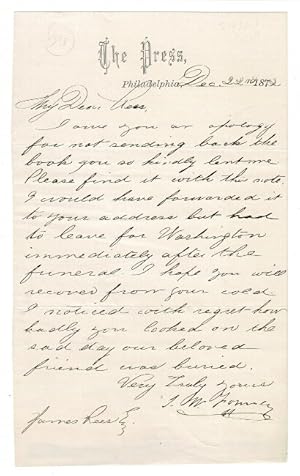 The Press,
Philadelphia, Dec. 22nd 1872
My Dear Rees
I owe you an apology
for not sending back the
book you so kindly lent me
Please find it with this note.
I would have forwarded it
to your address but had
to leave for Washington
immediately after the
funeral. I hope you will
recover from your cold
I noticed with regret how
badly you looked on the
sad day our beloved
friend was buried.
Very Truly Yours
J. W. Forney
James Rees Esq